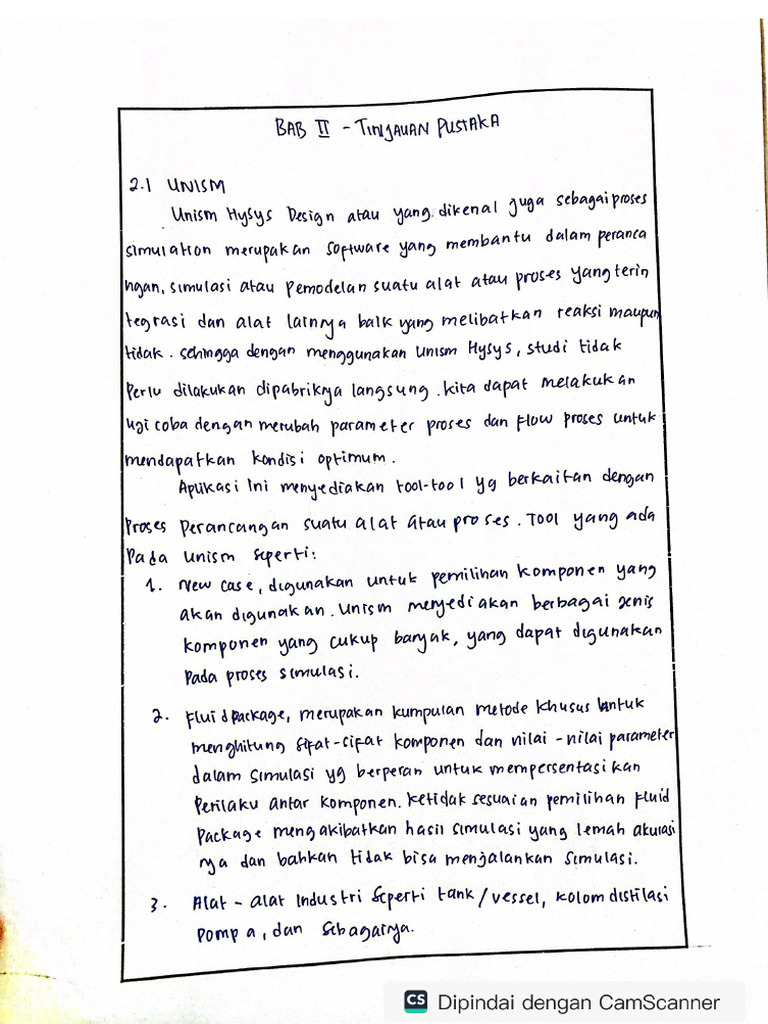 BAB II - TINJAUAN PUSTAKA
2.1 UNISM
Unism Hysys Design atau yang dikenal juga sebagai proses
simulation merupakan software yang membantu dalam peranca
ngan, simulasi atau pemodelan suatu alat atau proses yang terin
tegrasi dan alat lainnya baik yang melibatkan reaksi maupun
tidak. sehingga dengan menggunakan Unism Hysys, studi tidak
perlu dilakukan dipabriknya langsung. kita dapat melakukan
uji coba dengan merubah parameter proses dan flow proses untuk
mendapatkan kondisi optimum.
Aplikasi ini menyediakan tool-tool yg berkaitan dengan
proses perancangan suatu alat atau proses. Tool yang ada
pada unism seperti:
1. New case, digunakan untuk pemilihan komponen yang
akan digunakan. Unism menyediakan berbagai jenis
komponen yang cukup banyak, yang dapat digunakan
pada proses simulasi.
2. Fluid package, merupakan kumpulan metode khusus untuk
menghitung sifat-sifat komponen dan nilai-nilai parameter
dalam simulasi yg berperan untuk mempersentasikan
perilaku antar komponen. ketidak sesuaian pemilihan fluid
package mengakibatkan hasil simulasi yang lemah akurasi
nya dan bahkan tidak bisa menjalankan simulasi.
3. Alat-alat industri seperti tank/vessel, kolom distilasi
pompa, dan sebagainya.
CS Dipindai dengan CamScanner